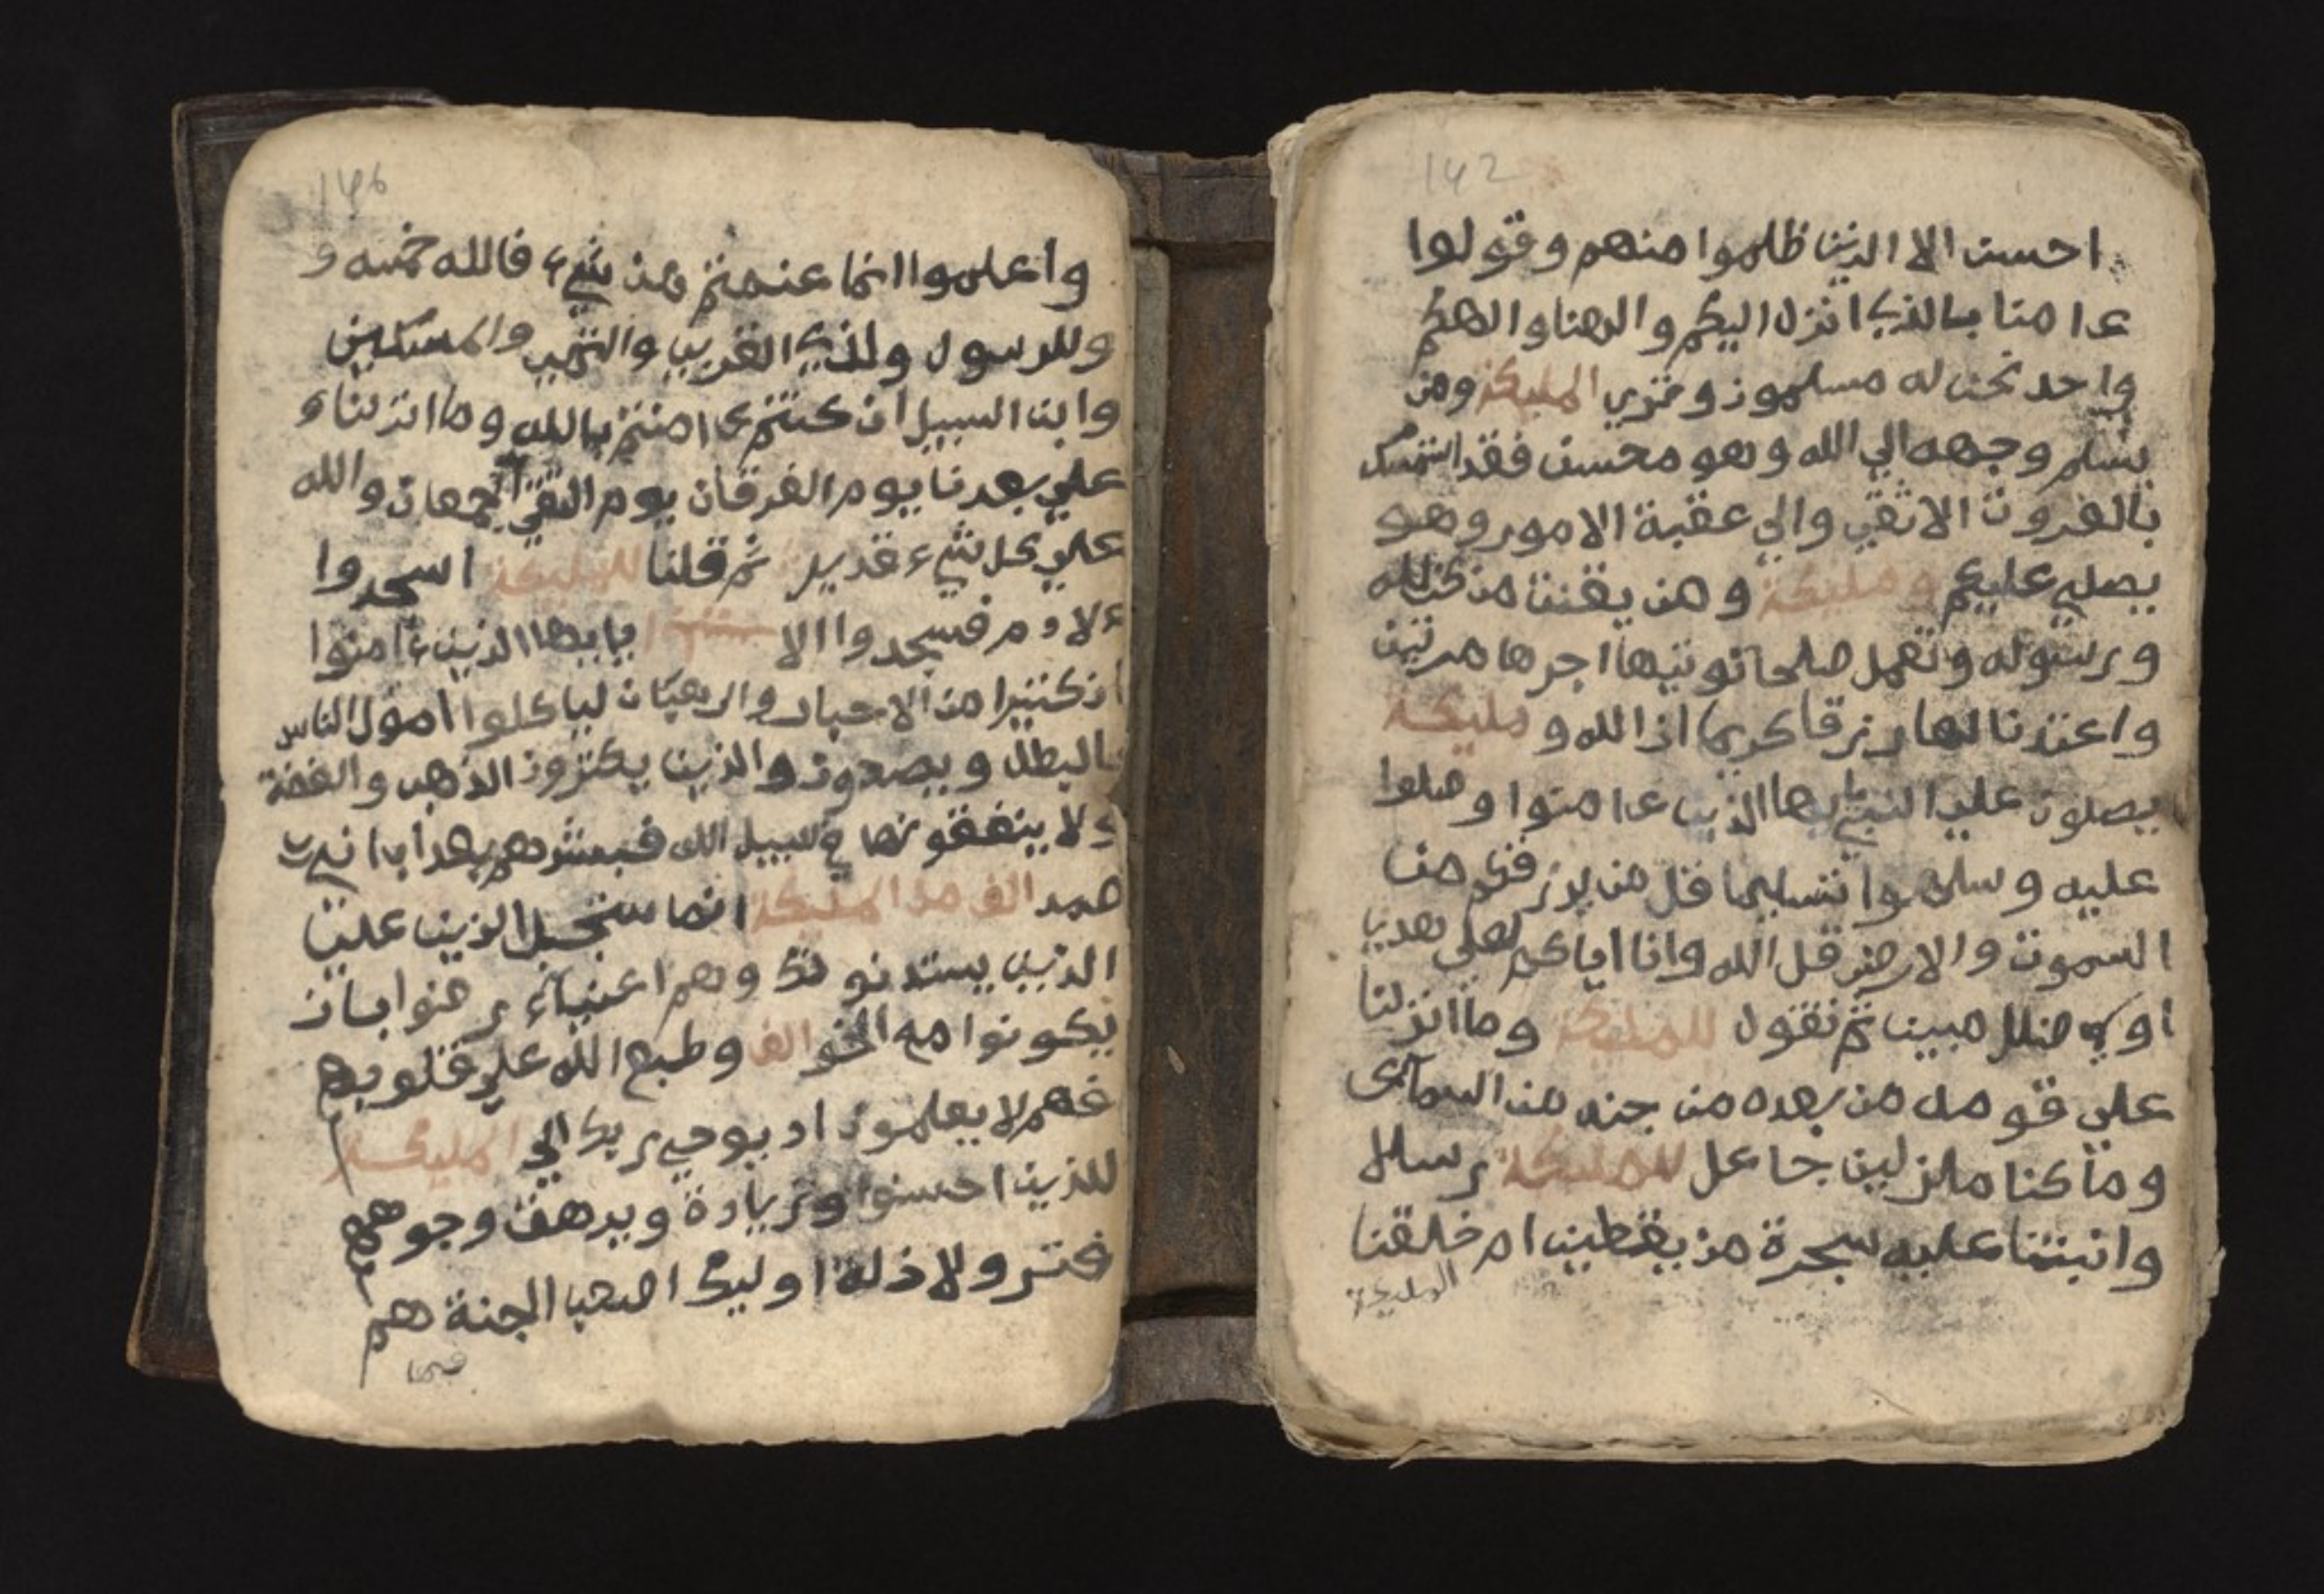 142
احسن الا الذين ظلموا منهم وقولوا
ءامنا بالذي انزل اليكم والهنا والهكم
واحد نحن له مسلمون وتري المليكة ومن
يسلم وجهه الي الله وهو محسن فقد استمسك
بالعروت الاثقي والي عقبة الامور وهو
يصلي عليكم و مليكة ومن يقنت منكن لله
ورسوله وتعمل صلحا نوتيها اجرها مرتين
واعتدنا لها رزقا كريما ان الله و مليكة
يصلون علي النبي يايها الذين ءامنوا وصلوا
عليه وسلموا تسليما قل من يرزقكم من
السموت والارض قل الله وانا اياكم لعلي هدي
او في ضلل مبين ثم نقول للمليكة وما انزلنا
علي قومه من بعده من جند من السماء
وما كنا منزلين جاعل للمليكة رسلا
وانبتنا عليه سجرة من يقطين ام خلقنا
المليكة
146
واعلموا انما غنمتم من شيء فالله خمسه و
وللرسول ولذي القربي واليتمي والمسكين
وابن السبيل ان كنتم ءامنتم بالله وما انزلناء
علي بعدنا يوم الفرقان يوم التقي الجمعان والله
علي كل شيء قدير ثم قلنا للمليكة اسجدوا
ءلادم فسجدوا الا يايها الذين ءامنوا
ان كثيرا من الاحبار والرهبان لياكلوا امول الناس
بالبطل ويصدون والذين يكنزون الذهب والفضة
ولا ينفقونها في سبيل الله فبشرهم بعداب اني
ممد الف من المليكة انما سجبل الذين علي
الذين يستدنونك وهم اغنياء رضوا بان
يكونوا مع الخوالف وطبع الله علي قلوبهم
فهم لا يعلمون اد يوحي ربك الي المليكة
للذين احسنوا وزيادة ويرهف وجوههم
قتر ولا ذلة اوليك اصحب الجنة هم
فيها